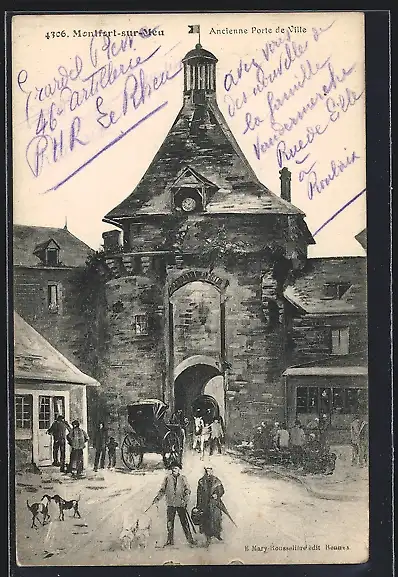 4306. Montfort-sur-Meu
Ancienne Porte de Ville
Girardel Pierre
46e artillerie
avez vous
des nouvelles de
la famille
Vandermerche
Rue de Lille
à
Roubaix
E. Mary-Rousselière édit Rennes